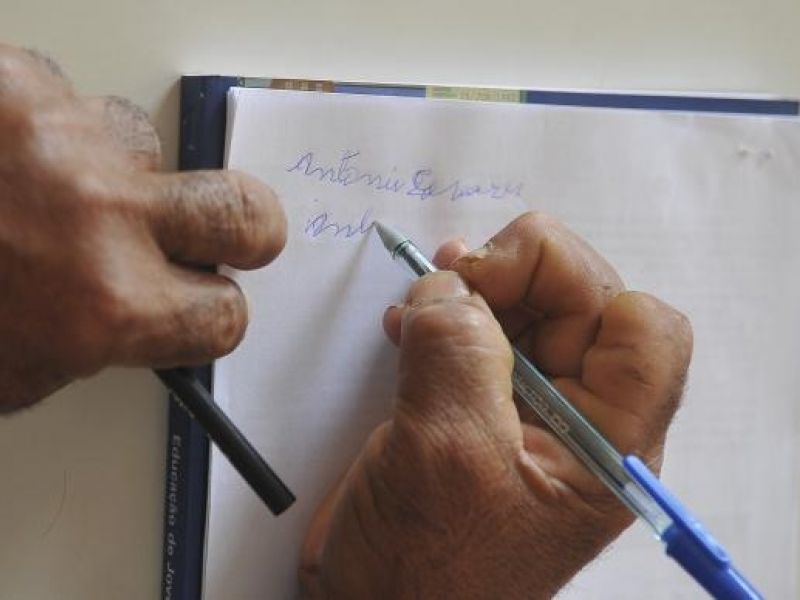 Antonio Tavares
Ant
Educação de Jov